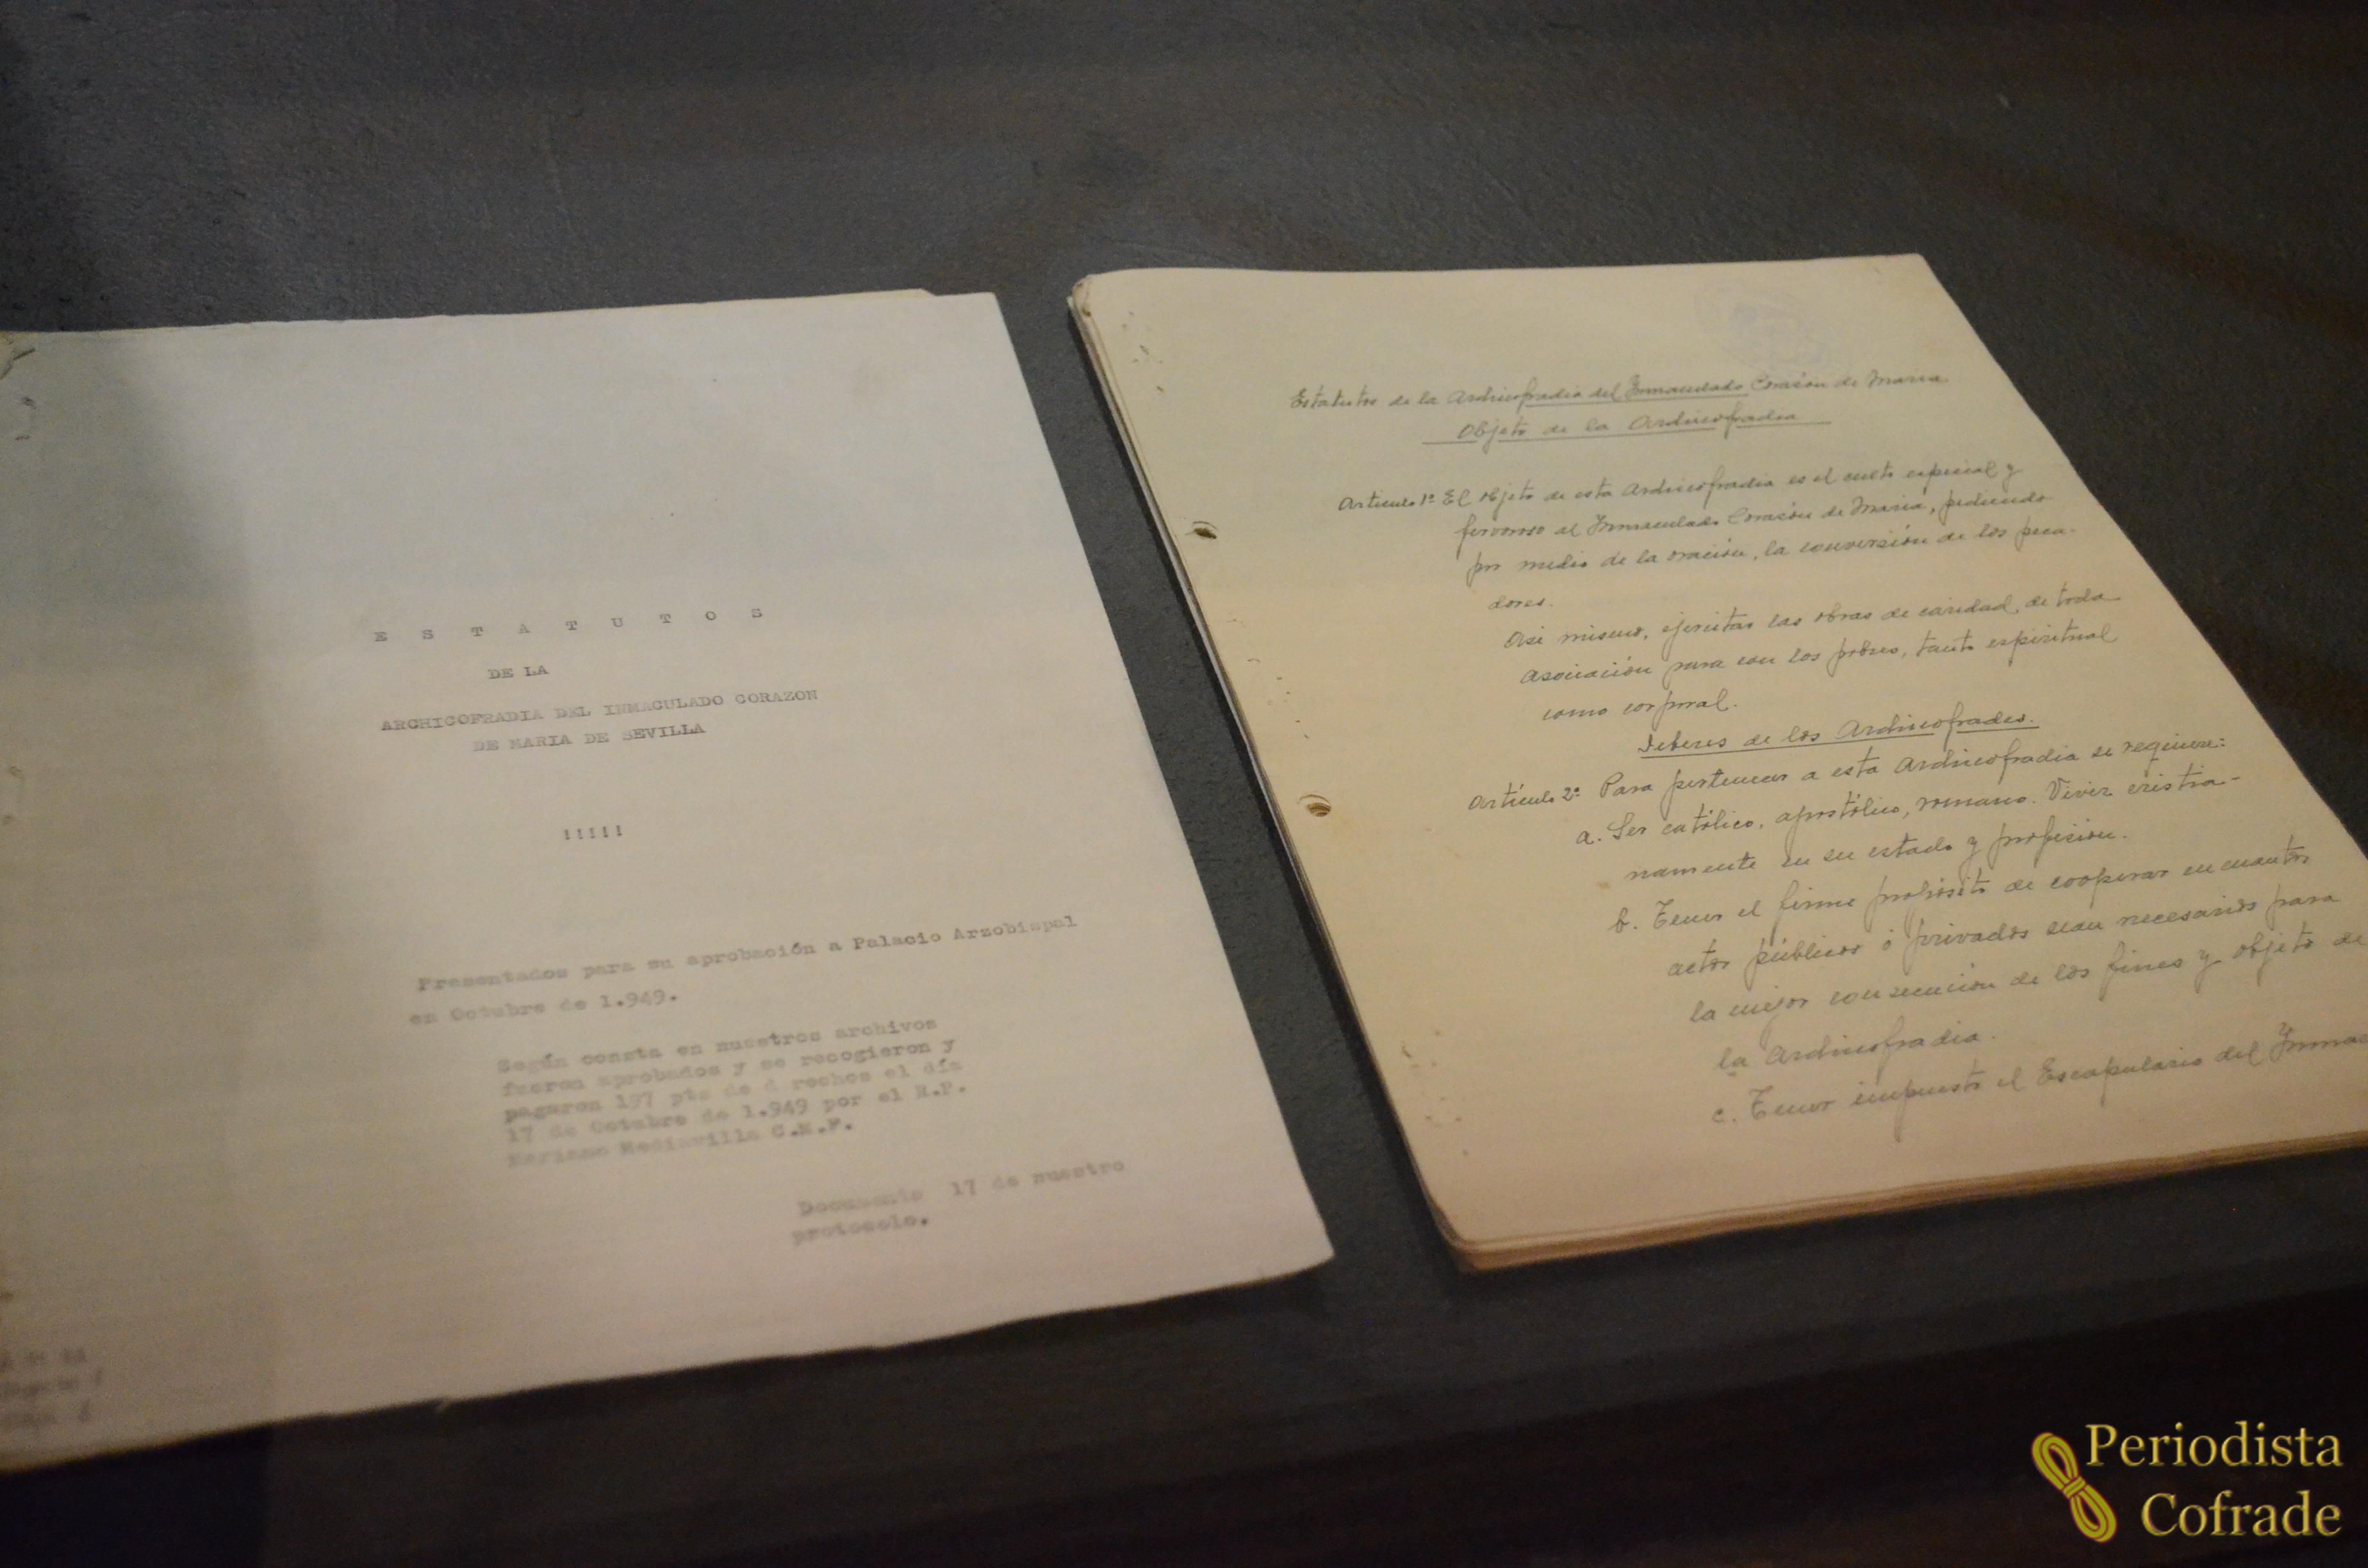 E S T A T U T O S
DE LA
ARCHICOFRADIA DEL INMACULADO CORAZON
DE MARIA DE SEVILLA
!!!!!
Presentados para su aprobación a Palacio Arzobispal
en Octubre de 1.949.
Según consta en nuestros archivos
fueron aprobados y se recogieron y
pagaron 197 pts de d rechos el día
17 de Octubre de 1.949 por el R.P.
Mariano Mediavilla C.M.F.
Documento 17 de nuestro
protocolo.
Estatutos de la Archicofradia del Inmaculado Corazón de Maria
Objeto de la Archicofradia
Articulo 1º El objeto de esta Archicofradia es el culto especial y
fervoroso al Inmaculado Corazón de Maria, pidiendo
por medio de la oración, la conversión de los peca-
dores.
Asi mismo, ejercitar las obras de caridad, de toda
asociación para con los pobres, tanto espiritual
como corporal.
Deberes de los Archicofrades.
Artículo 2º Para pertenecer a esta Archicofradia se requiere:
a. Ser católico, apostólico, romano. Vivir cristia-
namente en su estado y profesión.
b. Tener el firme propósito de cooperar en cuantos
actos públicos ó privados sean necesarios para
la mejor consecución de los fines y objeto de
la Archicofradia.
c. Tener impuesto el Escapulario del Inmac
Periodista
Cofrade